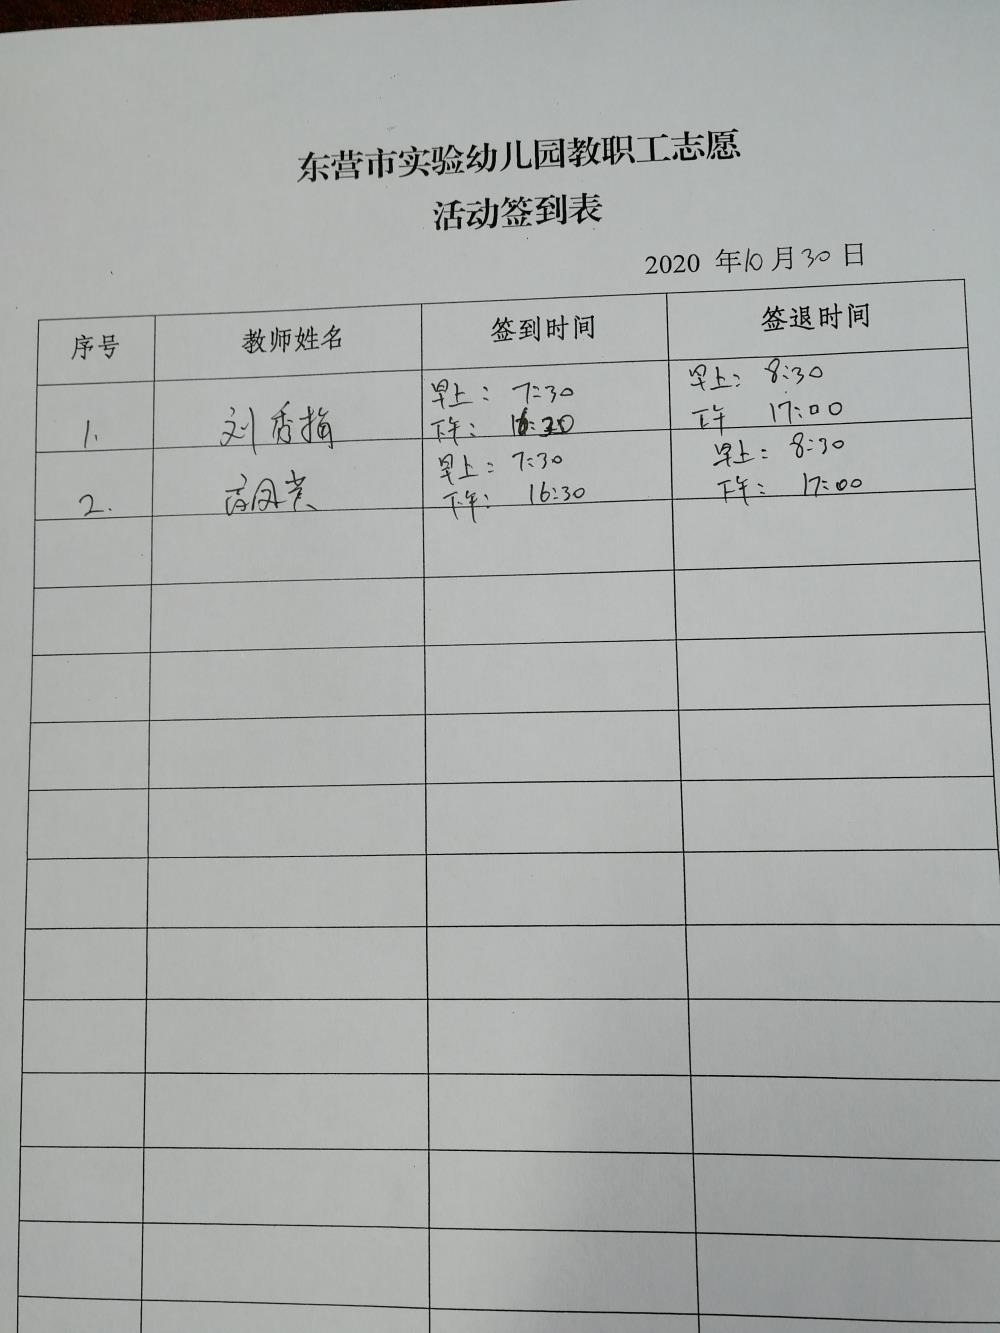 东营市实验幼儿园教职工志愿
活动签到表
2020 年10月30日
序号 教师姓名 签到时间 签退时间
早上：7:30 早上：8:30
1. 刘秀梅 下午：16:30 下午 17:00
早上：7:30 早上：8:30
2. 下午：16:30 下午：17:00